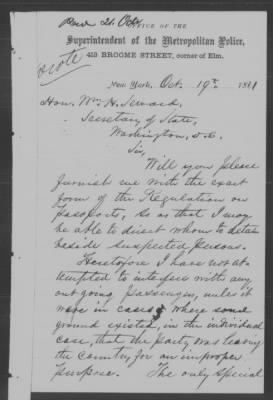 Recd 21. Oct.
OFFICE OF THE
Superintendent of the Metropolitan Police,
413 BROOME STREET, corner of Elm.
wrote
New York, Oct. 19th 1861
Hon. Wm H. Seward,
Secretary of State,
Washington, D.C.
Sir,
Will you please
furnish me with the exact
form of the Regulation on
Passports, so as that I may
be able to direct whom to detain
beside suspected persons.
Heretofore I have not at-
tempted to interfere with any
outgoing passenger, unless it
were in cases where some
ground existed, in the individual
case, that the party was leaving
the country for an improper
purpose. The only special